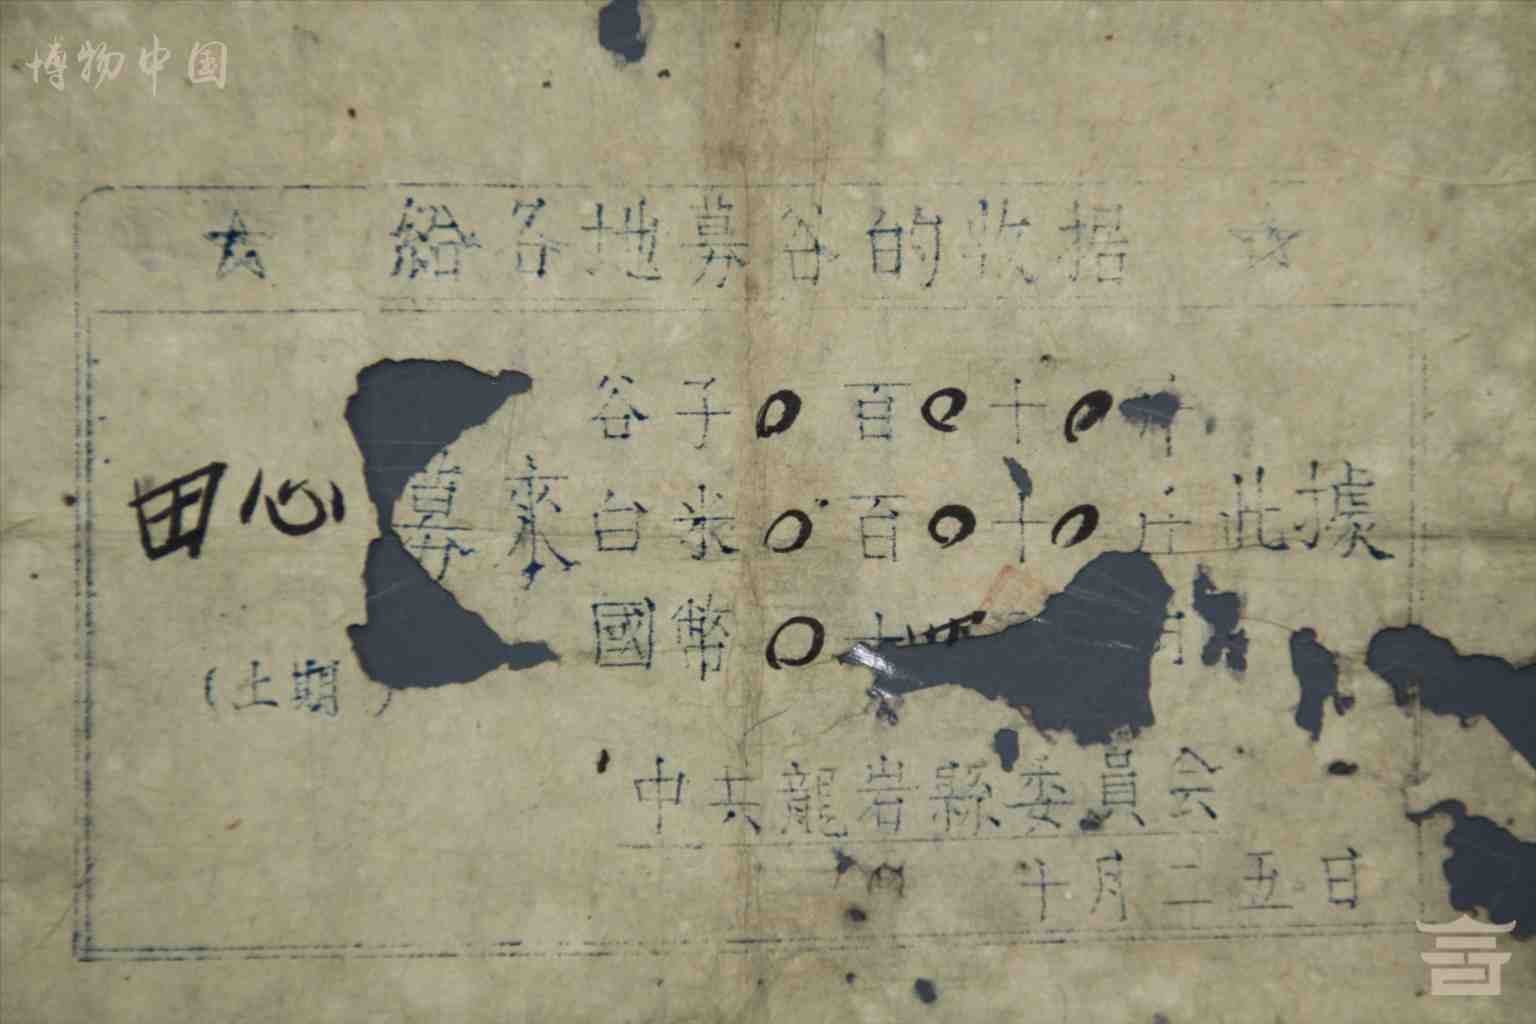 博物中国
★ 給各地募谷的收据 ☆
谷子0百0十0斤
田心 募来 台米0百0十0斤 此據
國幣0十四
(上期)
中共龍岩縣委員会
十月二五日